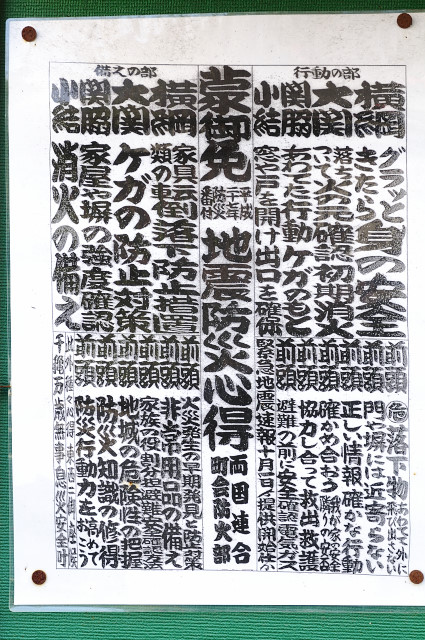 行動の部
横綱 グラッときたら身の安全
大関 落ちついて火の元確認初期消火
関脇 あわてた行動ケガのもと
小結 窓や戸を開け出口を確保
前頭 危落下物 あわてて外に飛び出さない
前頭 門や塀には近寄らない
前頭 正しい情報確かな行動
前頭 確かめ合おう 我が家の安全 隣の安否
前頭 協力し合って救出救護
前頭 避難の前に安全確認電気ガス
緊急地震速報十月一日ゟ提供開始
蒙御免
平成二十年
防災番付
地震防災心得
両国連合町会防火部
備えの部
横綱 家具類の転倒落下防止措置
大関 ケガの防止対策
関脇 家屋や塀の強度確認
小結 消火の備え
前頭 火災発生の早期発見と防災対策
前頭 非常用品の備え
前頭 家族の役割分担避難集合確認
前頭 地域の危険性の把握
前頭 防災知識の修得
前頭 防災行動力を高めておこう
千穐万歳無事息災安全叶